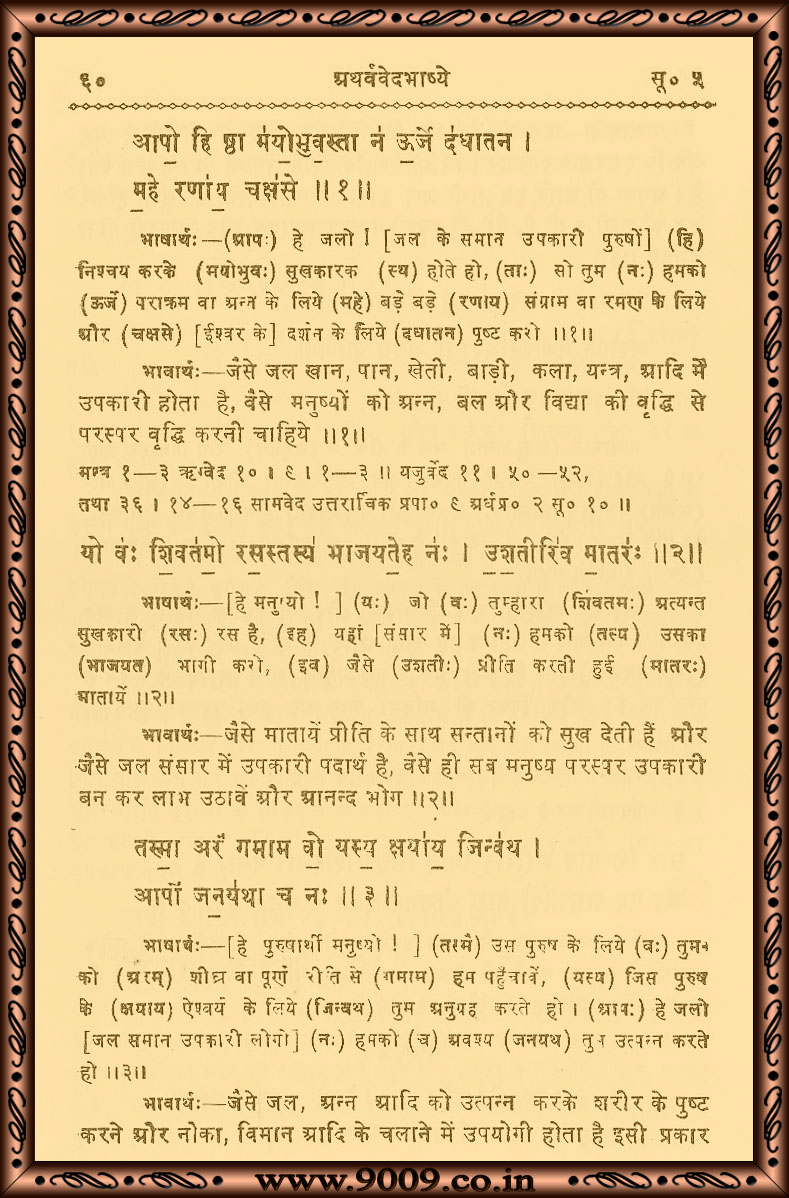 ६० अथर्ववेदभाष्ये सू० ५
आपो॒ हि ष्ठा म॑यो॒भुव॒स्ता न॑ ऊ॒र्जे द॑धातन ।
म॒हे रणा॑य॒ चक्ष॑से ॥१॥
भाषार्थः—(आपः) हे जलो ! [जल के समान उपकारी पुरुषों] (हि)
निश्चय करके (मयोभुवः) सुखकारक (स्थ) होते हो, (ताः) सो तुम (नः) हमको
(ऊर्जे) पराक्रम वा अन्न के लिये (महे) बड़े बड़े (रणाय) संग्राम वा रमण के लिये
और (चक्षसे) [ईश्वर के] दर्शन के लिये (दधातन) पुष्ट करो ॥१॥
भावार्थः—जैसे जल खान, पान, खेती, बाड़ी, कला, यन्त्र, आदि में
उपकारी होता है, वैसे मनुष्यों को अन्न, बल और विद्या की वृद्धि से
परस्पर वृद्धि करनी चाहिये ॥१॥
मन्त्र १—३ ऋग्वेद १० । ९ । १—३ ॥ यजुर्वेद ११ । ५० —५२,
तथा ३६ । १४—१६ सामवेद उत्तरार्चिक प्रपा० ९ अर्धप्र० २ सू० १० ॥
यो वः॑ शि॒वत॑मो॒ रस॒स्तस्य॑ भाजयते॒ह नः॑ । उ॒श॒तीरि॑व मा॒तरः॑ ॥२॥
भाषार्थः—[हे मनुष्यो ! ] (यः) जो (वः) तुम्हारा (शिवतमः) अत्यन्त
सुखकारी (रसः) रस है, (इह) यहां [संसार में] (नः) हमको (तस्य) उसका
(भाजयत) भागी करो, (इव) जैसे (उशतीः) प्रीति करती हुई (मातरः)
मातायें ॥२॥
भावार्थः—जैसे मातायें प्रीति के साथ सन्तानों को सुख देती हैं और
जैसे जल संसार में उपकारी पदार्थ है, वैसे ही सब मनुष्य परस्पर उपकारी
बन कर लाभ उठावें और आनन्द भोग ॥२॥
तस्मा॒ अरं॑ गमाम वो॒ यस्य॒ क्षया॑य॒ जिन्व॑थ ।
आपो॑ ज॒नय॑था च नः ॥३॥
भाषार्थः—[हे पुरुषार्थी मनुष्यो ! ] (तस्मै) उस पुरुष के लिये (वः) तुम-
को (अरम्) शीघ्र वा पूर्ण रीति से (गमाम) हम पहुँचावें, (यस्य) जिस पुरुष
के (क्षयाय) ऐश्वर्य के लिये (जिन्वथ) तुम अनुग्रह करते हो । (आपः) हे जलो
[जल समान उपकारी लोगो] (नः) हमको (च) अवश्य (जनयथ) तुम उत्पन्न करते
हो ॥३॥
भावार्थः—जैसे जल, अन्न आदि को उत्पन्न करके शरीर के पुष्ट
करने और नोका, विमान आदि के चलाने में उपयोगी होता है इसी प्रकार
www.9009.co.in